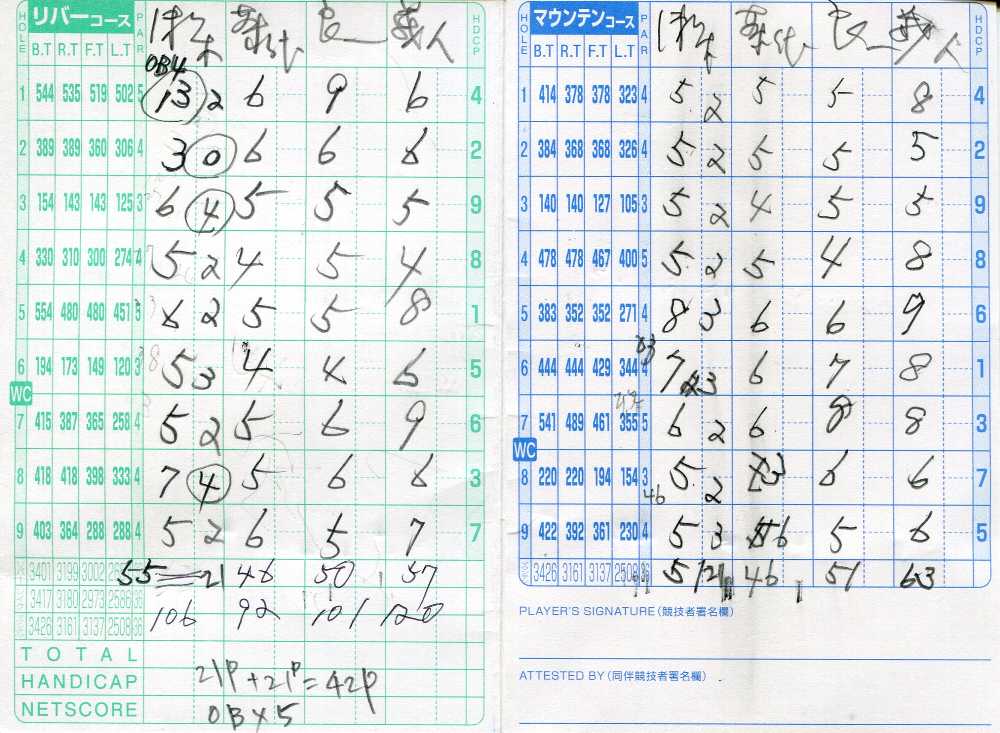 HOLE リバーコース PAR HDCP
B.T R.T F.T L.T 良一 義人
OB4
1 544 535 519 502 5 13 2 6 9 6 4
2 389 389 360 306 4 3 0 6 6 6 2
3 154 143 143 125 3 6 4 5 5 5 9
4 330 310 300 274 4 5 2 4 5 4 8
5 554 480 480 451 5 6 2 5 5 8 1
6 194 173 149 120 3 5 3 4 4 6 5
WC
7 415 387 365 258 4 5 2 5 6 9 6
8 418 418 398 333 4 7 4 5 6 6 3
9 403 364 288 288 4 5 2 6 5 7 7
3401 3199 3002 55 21 46 50 57
3417 3180 2973 2586 36 106 92 101 120
3426 3161 3137 2508 36
TOTAL
HANDICAP 21P+21P=42P
NETSCORE OB×5
HOLE マウンテンコース PAR HDCP
B.T R.T F.T L.T 良一 義人
1 414 378 378 323 4 5 2 5 5 8 4
2 384 368 368 326 4 5 2 5 5 5 2
3 140 140 127 105 3 5 2 4 5 5 9
4 478 478 467 400 5 5 2 5 4 8 8
5 383 352 352 271 4 8 3 6 6 9 6
6 444 444 429 344 4 7 3 6 7 8 1
7 541 489 461 355 5 6 2 6 8 8 3
WC
8 220 220 194 154 3 5 2 3 6 6 7
46
9 422 392 361 230 4 5 3 6 5 6 5
3426 3161 3137 2508 36 51 21 46 51 63
PLAYER'S SIGNATURE（競技者署名欄）
ATTESTED BY（同伴競技者署名欄）